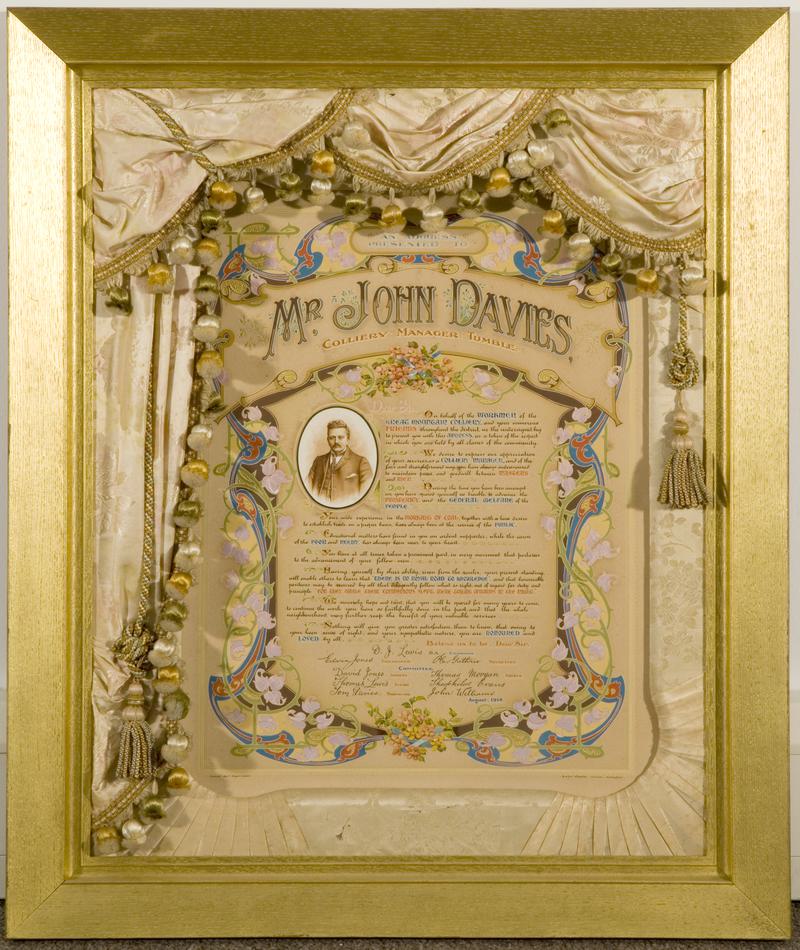 AN ADDRESS
PRESENTED TO
MR. JOHN DAVIES,
COLLIERY MANAGER TUMBLE.
Dear Sir
On behalf of the WORKMEN of the
GREAT MOUNTAIN COLLIERY, and your numerous
FRIENDS throughout the district, we the undersigned beg
to present you with this ADDRESS, as a token of the respect
in which you are held by all classes of the community.
We desire to express our appreciation
of your services as COLLIERY MANAGER, and of the
fair and straightforward way you have always endeavoured
to maintain peace and goodwill between MASTERS
and MEN.
During the time you have been amongst
us, you have spared yourself no trouble to advance the
PROSPERITY, and the GENERAL WELFARE of the
PEOPLE.
Your wide experience in the WORKING OF COAL, together with a keen desire
to establish trade on a proper basis, have always been at the service of the PUBLIC.
Educational matters have found in you an ardent supporter, while the cause
of the POOR AND NEEDY has always been near to your heart.
You have at all times taken a prominent part in every movement that pertains
to the advancement of your fellow men
Having yourself, by sheer ability, risen from the ranks, your present standing
will enable others to learn that "THERE IS NO ROYAL ROAD TO KNOWLEDGE", and that honourable
positions may be secured by all that diligently follow what is right, out of regard for duty and
principle
We sincerely hope and trust, that you will be spared for many years to come,
to continue the work you have so faithfully done in the past, and that the whole
neighbourhood may further reap the benefit of your valuable services
Nothing will give you greater satisfaction than to know, that owing to
your keen sense of right, and your sympathetic nature, you are HONOURED and
LOVED by all.
Believe us to be, Dear Sir,
D. J. Lewis B.A.
Edwin Jones
COMMITTEE
David Jones Thomas Morgan
Thomas Lewis Theophilus Evans
Tom Davies John Williams
August, 1914